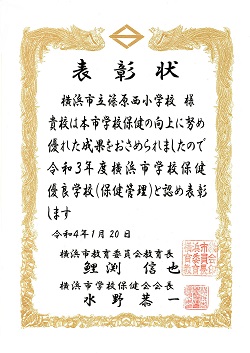 表彰状
横浜市立篠原西小学校 様
貴校は本市学校保健の向上に努め
優れた成果をおさめられましたので
令和3年度横浜市学校保健
優良学校(保健管理)と認め表彰
します
令和4年1月20日
横浜市教育委員会教育長
鯉渕 信也
横浜市学校保健会会長
水野 恭一